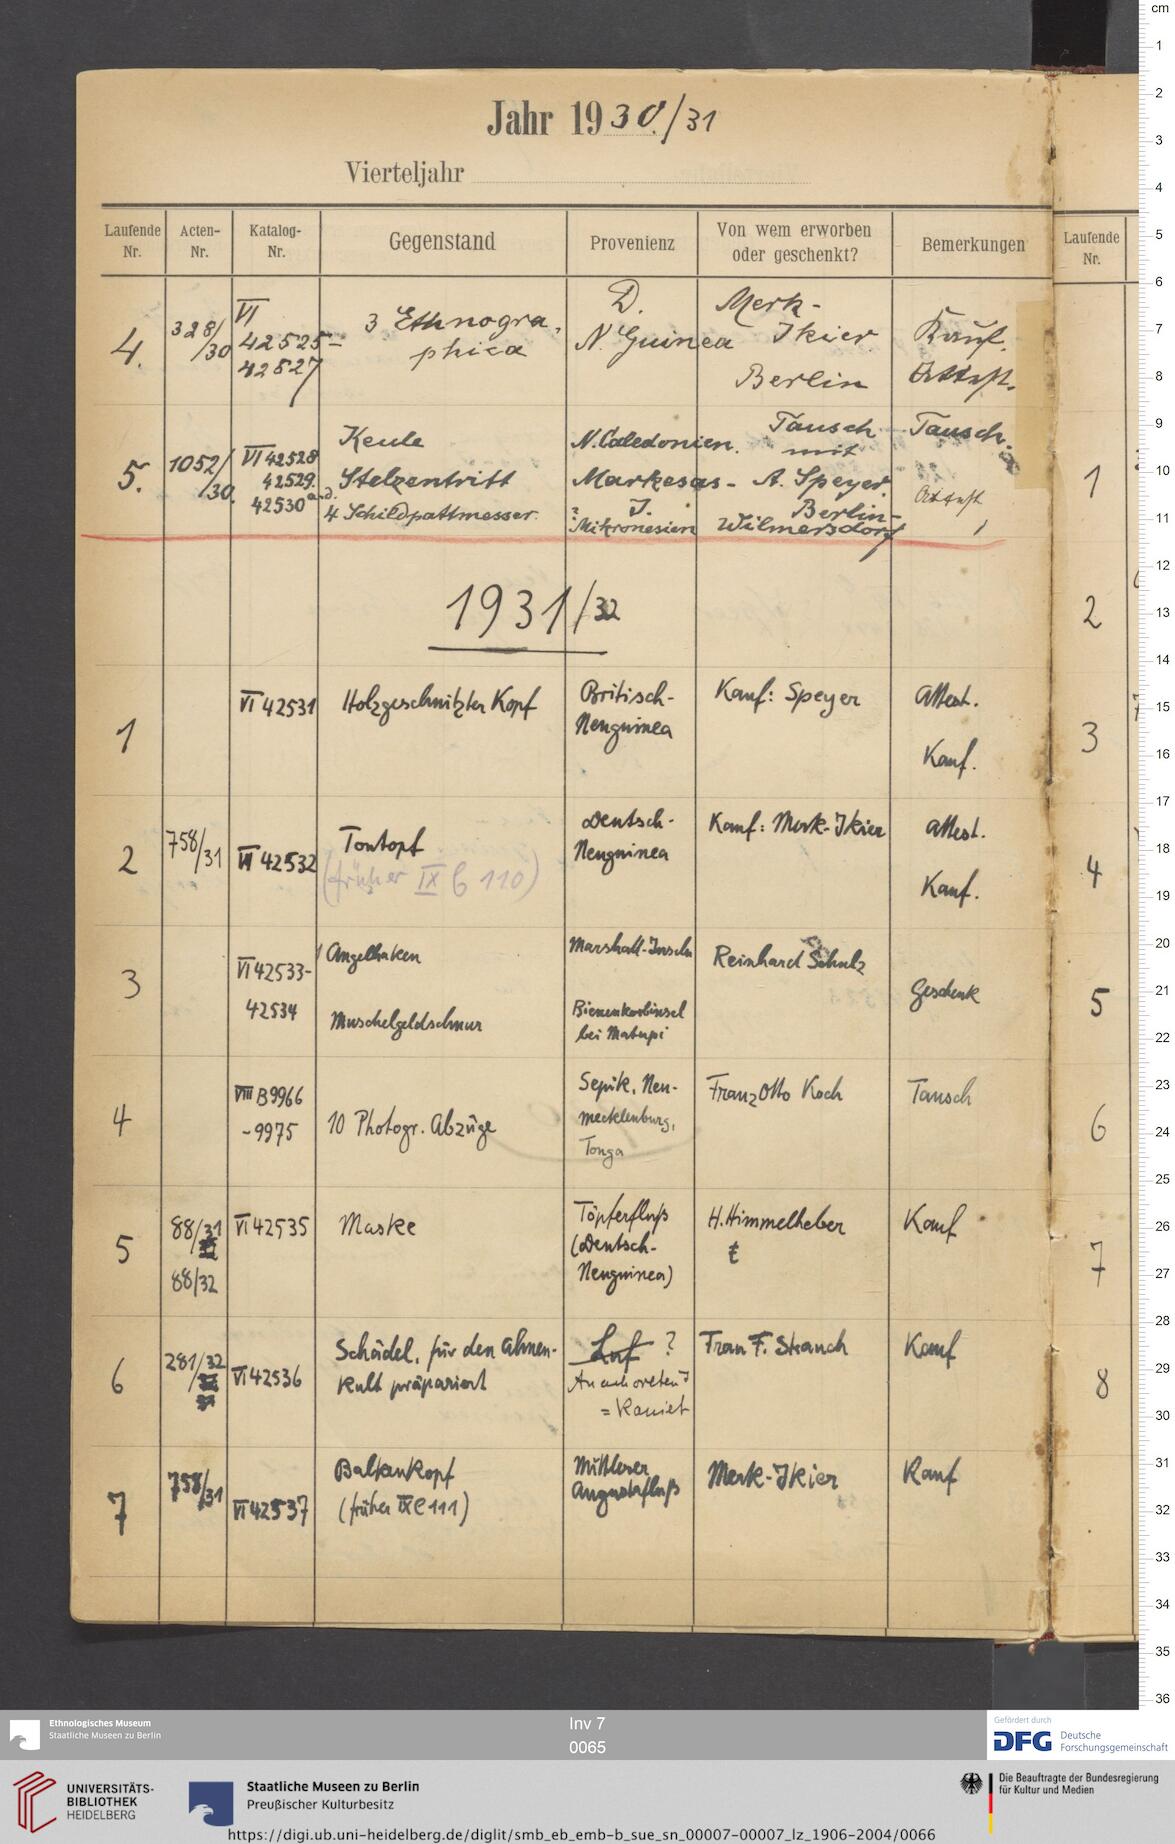 Jahr 1930/31
Vierteljahr
Laufende Nr. Acten-Nr. Katalog-Nr. Gegenstand Provenienz Von wem erworben oder geschenkt? Bemerkungen
4. 328/30 VI 42525-42527 3 Ethnographica D. N. Guinea Merk-Ikier Berlin Kauf. Attest.
5. 1052/30. VI 42528 Keule N. Caledonien. Tausch mit Tausch.
42529. Stelzentritt Markesas-I. A. Speyer Attest
42530 a-d. 4 Schildpattmesser. ? Mikronesien Berlin-Wilmersdorf
1931/32
1 VI 42531 Holzgeschnitzter Kopf Britisch-Neuguinea Kauf: Speyer Attest. Kauf.
2 758/31 VI 42532 Tontopf Deutsch-Neuguinea Kauf: Merk-Ikier Attest. Kauf.
(früher IX b 110)
3 VI 42533- 1 Angelhaken Marshall-Inseln Reinhard Schulz Geschenk
42534 Muschelgeldschnur Bienenkorbinsel bei Matupi
4 VIII B 9966-9975 10 Photogr. Abzüge Sepik, Neu-mecklenburg, Tonga Franz Otto Koch Tausch
5 88/31 VI 42535 Maske Töpferfluß (Deutsch-Neuguinea) H. Himmelheber Kauf
88/32
6 281/32 VI 42536 Schädel, für den Ahnen-kult präpariert Luf ? Frau F. Strauch Kauf
Anachoreten ?
= Kaniet
7 758/31 VI 42537 Balkenkopf Mittlerer Augustafluß Merk-Ikier Kauf
(früher IX C 111)
Laufende Nr.
1
2
3
4
5
6
7
8
cm
1
2
3
4
5
6
7
8
9
10
11
12
13
14
15
16
17
18
19
20
21
22
23
24
25
26
27
28
29
30
31
32
33
34
35
36
Ethnologisches Museum
Staatliche Museen zu Berlin
Inv 7
0065
Gefördert durch
DFG Deutsche Forschungsgemeinschaft
UNIVERSITÄTS-
BIBLIOTHEK
HEIDELBERG
Staatliche Museen zu Berlin
Preußischer Kulturbesitz
Die Beauftragte der Bundesregierung
für Kultur und Medien
https://digi.ub.uni-heidelberg.de/diglit/smb_eb_emb-b_sue_sn_00007-00007_lz_1906-2004/0066